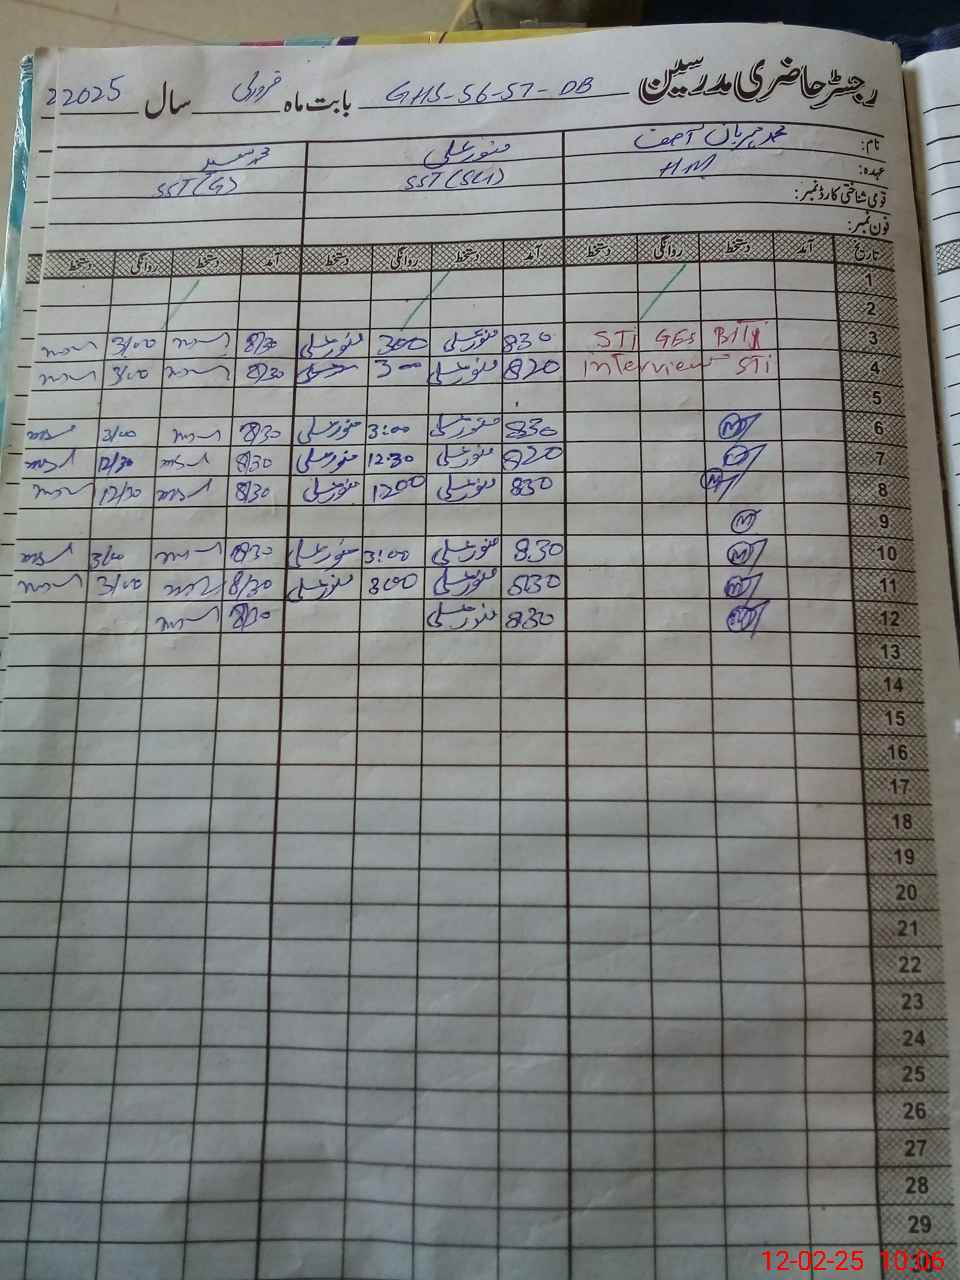 رجسٹر حاضری مدرسین GHS-56-57-DB بابت ماہ فروری سال 2025
نام: محمد مہربان آصف منور علی محمد سعید
عہدہ: HM SST (SCI) SST (G)
قومی شناختی کارڈ نمبر:
فون نمبر:
تاریخ آمد دستخط روانگی دستخط آمد دستخط روانگی دستخط آمد دستخط روانگی دستخط
1
2
3 STi GES 830 منور علی 300 منور علی 8/30 3/00
4 interview STi 820 منور علی 3 8/30 3/00
5
6 830 منور علی 3:00 منور علی 8/30 3/00
7 820 منور علی 12:30 منور علی 8/30 12/30
8 830 منور علی 1200 منور علی 8/30 12/30
9
10 8.30 منور علی 3:00 منور علی 8/30 3/00
11 830 منور علی 300 منور علی 8/30 3/00
12 830 منور علی 8/30
13
14
15
16
17
18
19
20
21
22
23
24
25
26
27
28
29
30
12-02-25 10:06